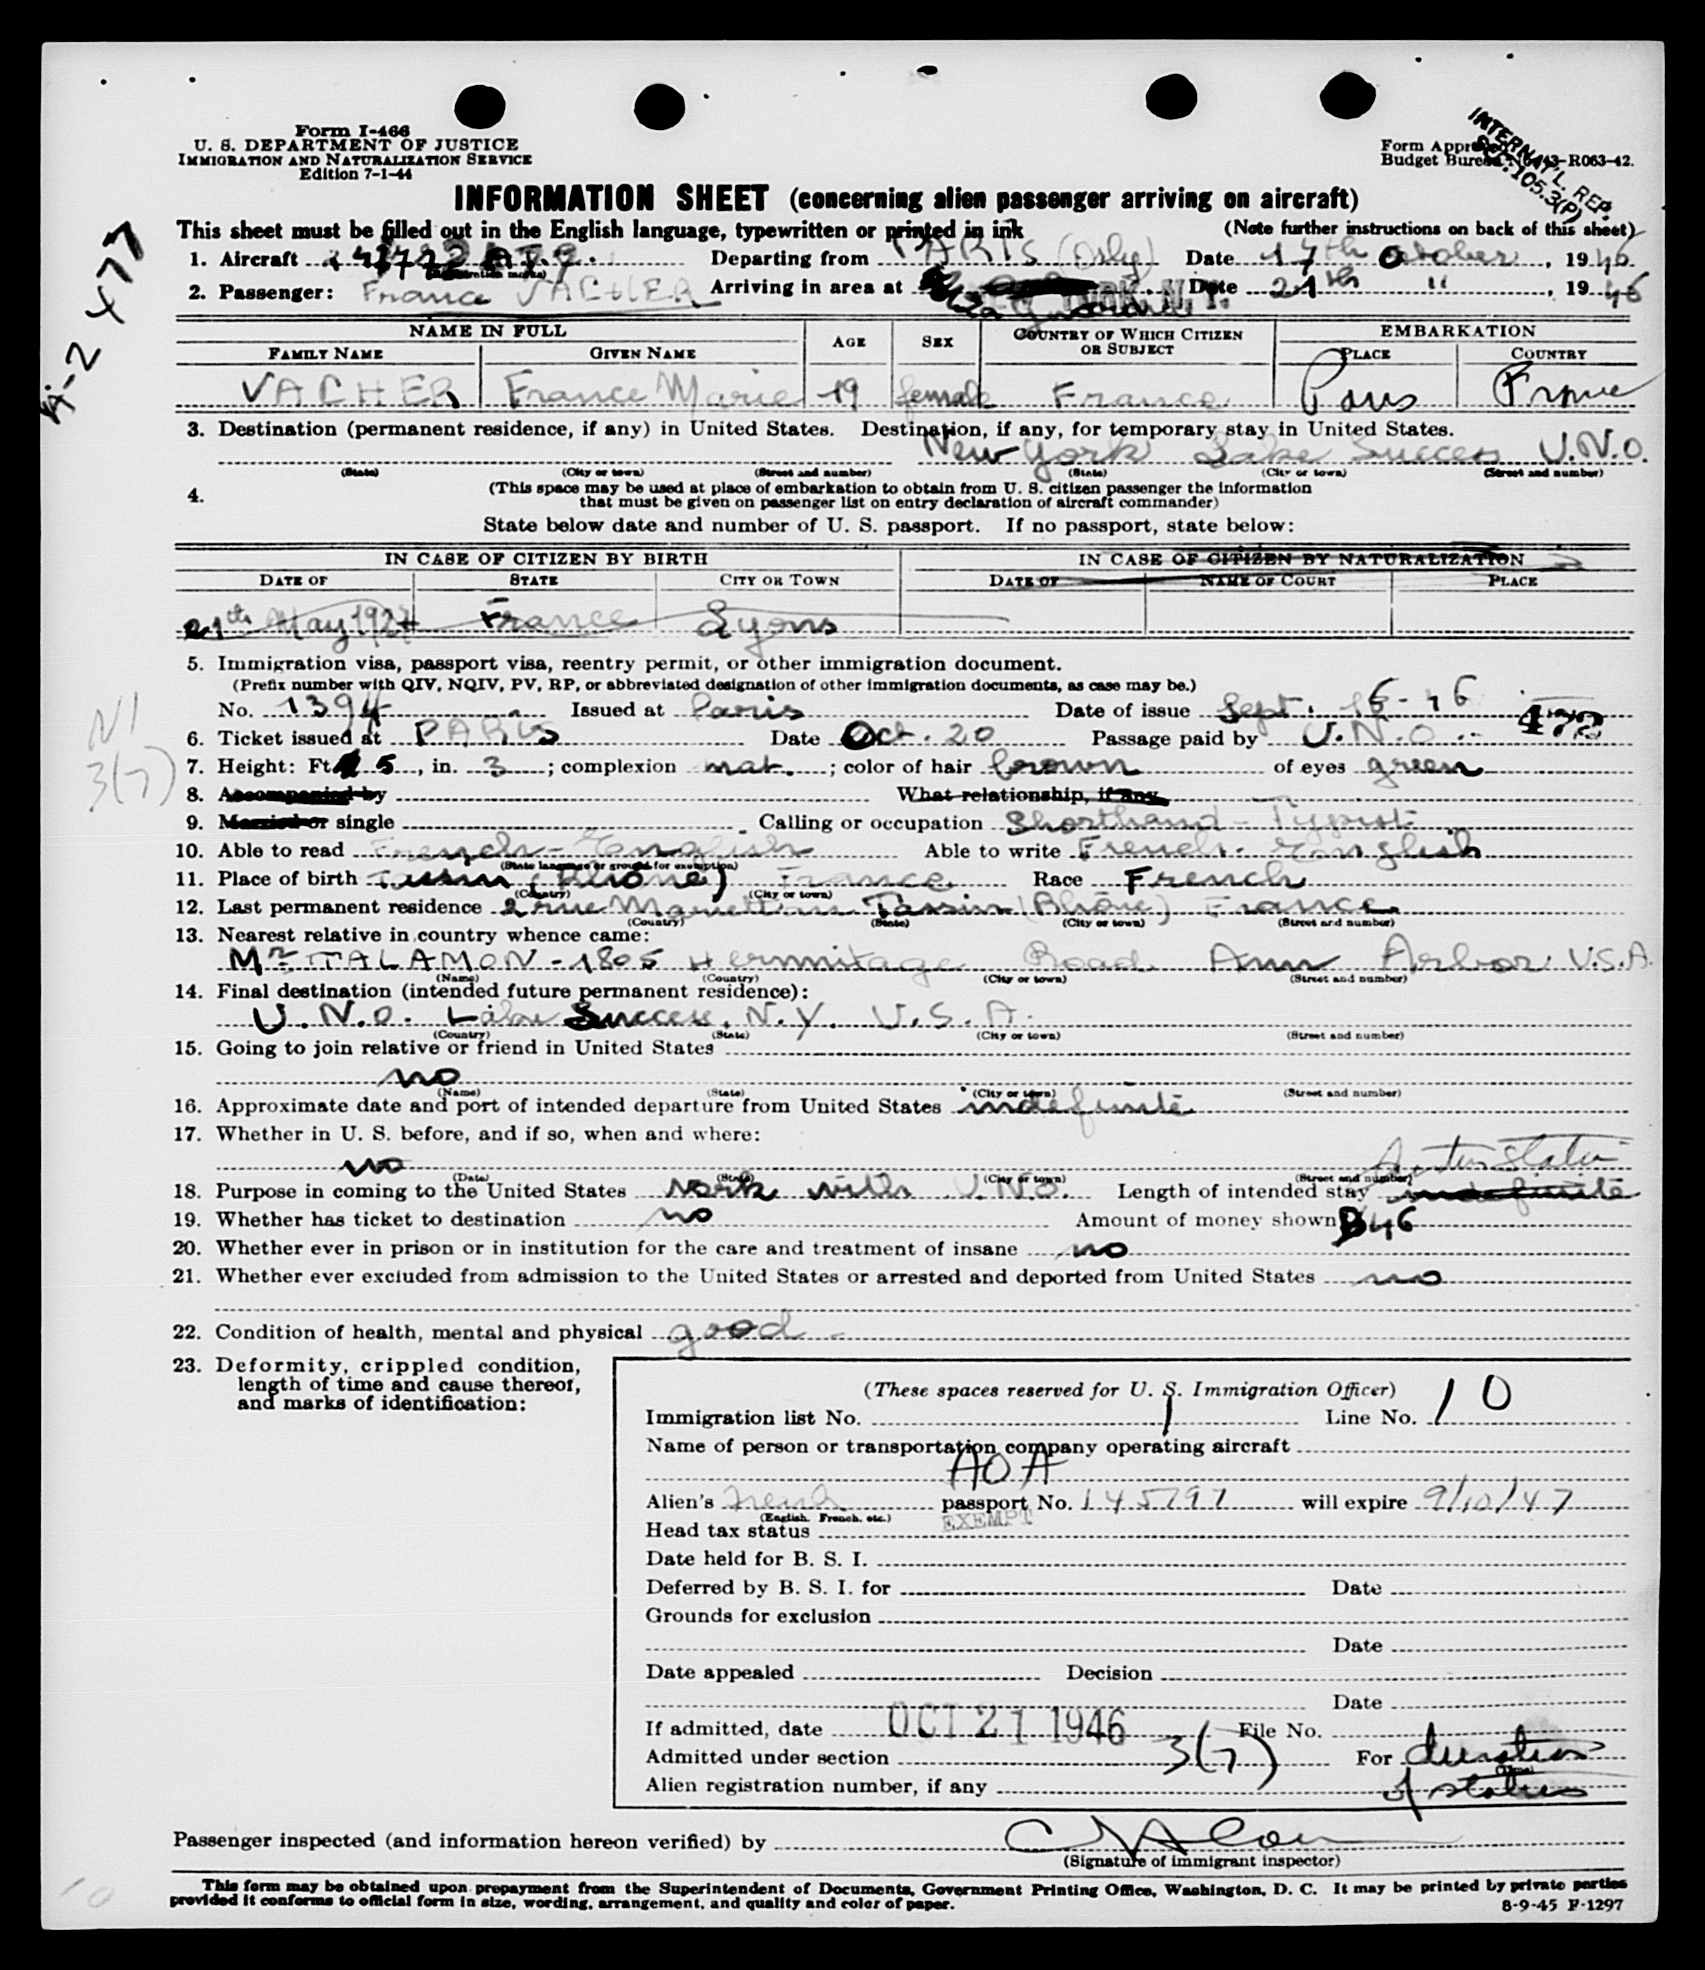 Form I-466
U. S. DEPARTMENT OF JUSTICE
IMMIGRATION AND NATURALIZATION SERVICE
Edition 7-1-44
Form Approved
Budget Bureau No. 43-R063-42.
INTERNAT'L. REP.
SEC. 105.3(P)
INFORMATION SHEET (concerning alien passenger arriving on aircraft)
This sheet must be filled out in the English language, typewritten or printed in ink (Note further instructions on back of this sheet)
A-2 477
1. Aircraft Departing from PARIS (Orly) Date 17th October, 1946
2. Passenger: France VACHER Arriving in area at NEW YORK, N. Y. La Guardia Date 21th ", 1946
NAME IN FULL AGE SEX COUNTRY OF WHICH CITIZEN OR SUBJECT EMBARKATION
FAMILY NAME GIVEN NAME PLACE COUNTRY
VACHER France Marie 19 female France Paris France
3. Destination (permanent residence, if any) in United States. Destination, if any, for temporary stay in United States.
New York Lake Success U.N.O.
(State) (City or town) (Street and number) (State) (City or town) (Street and number)
4. (This space may be used at place of embarkation to obtain from U. S. citizen passenger the information
that must be given on passenger list on entry declaration of aircraft commander)
State below date and number of U. S. passport. If no passport, state below:
IN CASE OF CITIZEN BY BIRTH IN CASE OF CITIZEN BY NATURALIZATION
DATE OF STATE CITY OR TOWN DATE OF NAME OF COURT PLACE
21th May 1927 France Lyons
5. Immigration visa, passport visa, reentry permit, or other immigration document.
(Prefix number with QIV, NQIV, PV, RP, or abbreviated designation of other immigration documents, as case may be.)
No. 1394 Issued at Paris Date of issue Sept. 16-46
6. Ticket issued at PARIS Date Oct. 20 Passage paid by U.N.O.
N1
3(7)
7. Height: Ft. 5, in. 3; complexion mat.; color of hair brown of eyes green
8. Accompanied by What relationship, if any
9. Married or single Calling or occupation Shorthand-Typist
10. Able to read French-English Able to write French-English
(State language or ground for exemption)
11. Place of birth Tassin (Rhône) France Race French
(Country) (City or town)
12. Last permanent residence Tassin (Rhône) France
(Country) (State) (City or town) (Street and number)
13. Nearest relative in country whence came:
Mr TALAMON - 1805 Hermitage Road Ann Arbor U.S.A.
(Name) (Country) (City or town) (Street and number)
14. Final destination (intended future permanent residence):
U.N.O. Lake Success. N.Y. U.S.A.
(Country) (State) (City or town) (Street and number)
15. Going to join relative or friend in United States
no
(Name) (State) (City or town) (Street and number)
16. Approximate date and port of intended departure from United States indefinite
17. Whether in U. S. before, and if so, when and where:
no
(Date) (State) (City or town) (Street and number)
18. Purpose in coming to the United States Work with U.N.O. Length of intended stay indefinite
19. Whether has ticket to destination no Amount of money shown $46
20. Whether ever in prison or in institution for the care and treatment of insane no
21. Whether ever excluded from admission to the United States or arrested and deported from United States no
22. Condition of health, mental and physical good
23. Deformity, crippled condition,
length of time and cause thereof,
and marks of identification:
(These spaces reserved for U. S. Immigration Officer)
Immigration list No. 1 Line No. 10
Name of person or transportation company operating aircraft
AOA
Alien's French passport No. 145797 will expire 9/10/47
(English, French, etc.)
Head tax status EXEMPT
Date held for B. S. I.
Deferred by B. S. I. for Date
Grounds for exclusion
Date
Date appealed Decision
Date
If admitted, date OCT 21 1946 File No.
Admitted under section 3(7) For duration
(Time)
Alien registration number, if any of status
Passenger inspected (and information hereon verified) by
(Signature of immigrant inspector)
10
This form may be obtained upon prepayment from the Superintendent of Documents, Government Printing Office, Washington, D. C. It may be printed by private parties
provided it conforms to official form in size, wording, arrangement, and quality and color of paper.
8-9-45 F-1297